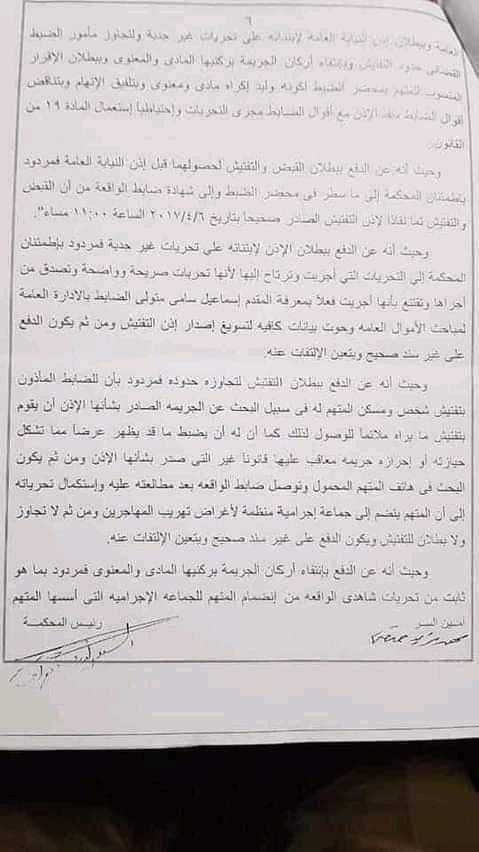 ٦
العامة وببطلان إذن النيابة العامة لإبتنائه على تحريات غير جدية ولتجاوز مأمور الضبط
القضائى حدود التفتيش وبإنتفاء أركان الجريمة بركنيها المادى والمعنوى وببطلان الإقرار
المنسوب للمتهم بمحضر الضبط لكونه وليد إكراه مادى ومعنوى وبتلفيق الإتهام وبتناقض
أقوال الضابط منفذ الإذن مع أقوال الضابط مجرى التحريات وإحتياطياً إستعمال المادة ١٩ من
القانون.
وحيث أنه عن الدفع ببطلان القبض والتفتيش لحصولهما قبل إذن النيابة العامة فمردود
بإطمئنان المحكمة إلى ما سطر فى محضر الضبط وإلى شهادة ضابط الواقعة من أن القبض
والتفتيش تما نفاذا لإذن التفتيش الصادر صحيحا بتاريخ ٢٠١٧/٤/٦ الساعة ١١:٠٠ مساء".
وحيث أنه عن الدفع ببطلان الإذن لإبتنائه على تحريات غير جدية فمردود بإطمئنان
المحكمة إلى التحريات التي أجريت وترتاح إليها لأنها تحريات صريحة وواضحة وتصدق من
أجراها وتقتنع بأنها أجريت فعلاً بمعرفة المقدم إسماعيل سامى متولى الضابط بالادارة العامة
لمباحث الأموال العامه وحوت بيانات كافيه لتسويغ إصدار إذن التفتيش ومن ثم يكون الدفع
على غير سند صحيح ويتعين الإلتفات عنه.
وحيث أنه عن الدفع ببطلان التفتيش لتجاوزه حدوده فمردود بأن للضابط المأذون
بتفتيش شخص ومسكن المتهم له فى سبيل البحث عن الجريمه الصادر بشأنها الإذن أن يقوم
بتفتيش ما يراه ملائماً للوصول لذلك كما أن له أن يضبط ما قد يظهر عرضاً مما تشكل
حيازته أو إحرازه جريمه معاقب عليها قانوناً غير التى صدر بشأنها الإذن ومن ثم يكون
البحث فى هاتف المتهم المحمول وتوصل ضابط الواقعه بعد مطالعته عليه وإستكمال تحرياته
إلى أن المتهم ينضم إلى جماعة إجرامية منظمة لأغراض تهريب المهاجرين ومن ثم لا تجاوز
ولا بطلان للتفتيش ويكون الدفع على غير سند صحيح ويتعين الإلتفات عنه.
وحيث أنه عن الدفع بإنتفاء أركان الجريمة بركنيها المادى والمعنوى فمردود بما هو
ثابت من تحريات شاهدى الواقعه من إنضمام المتهم للجماعه الإجراميه التي أسسها المتهم
أمـين السـر
رئيس المحكمـة